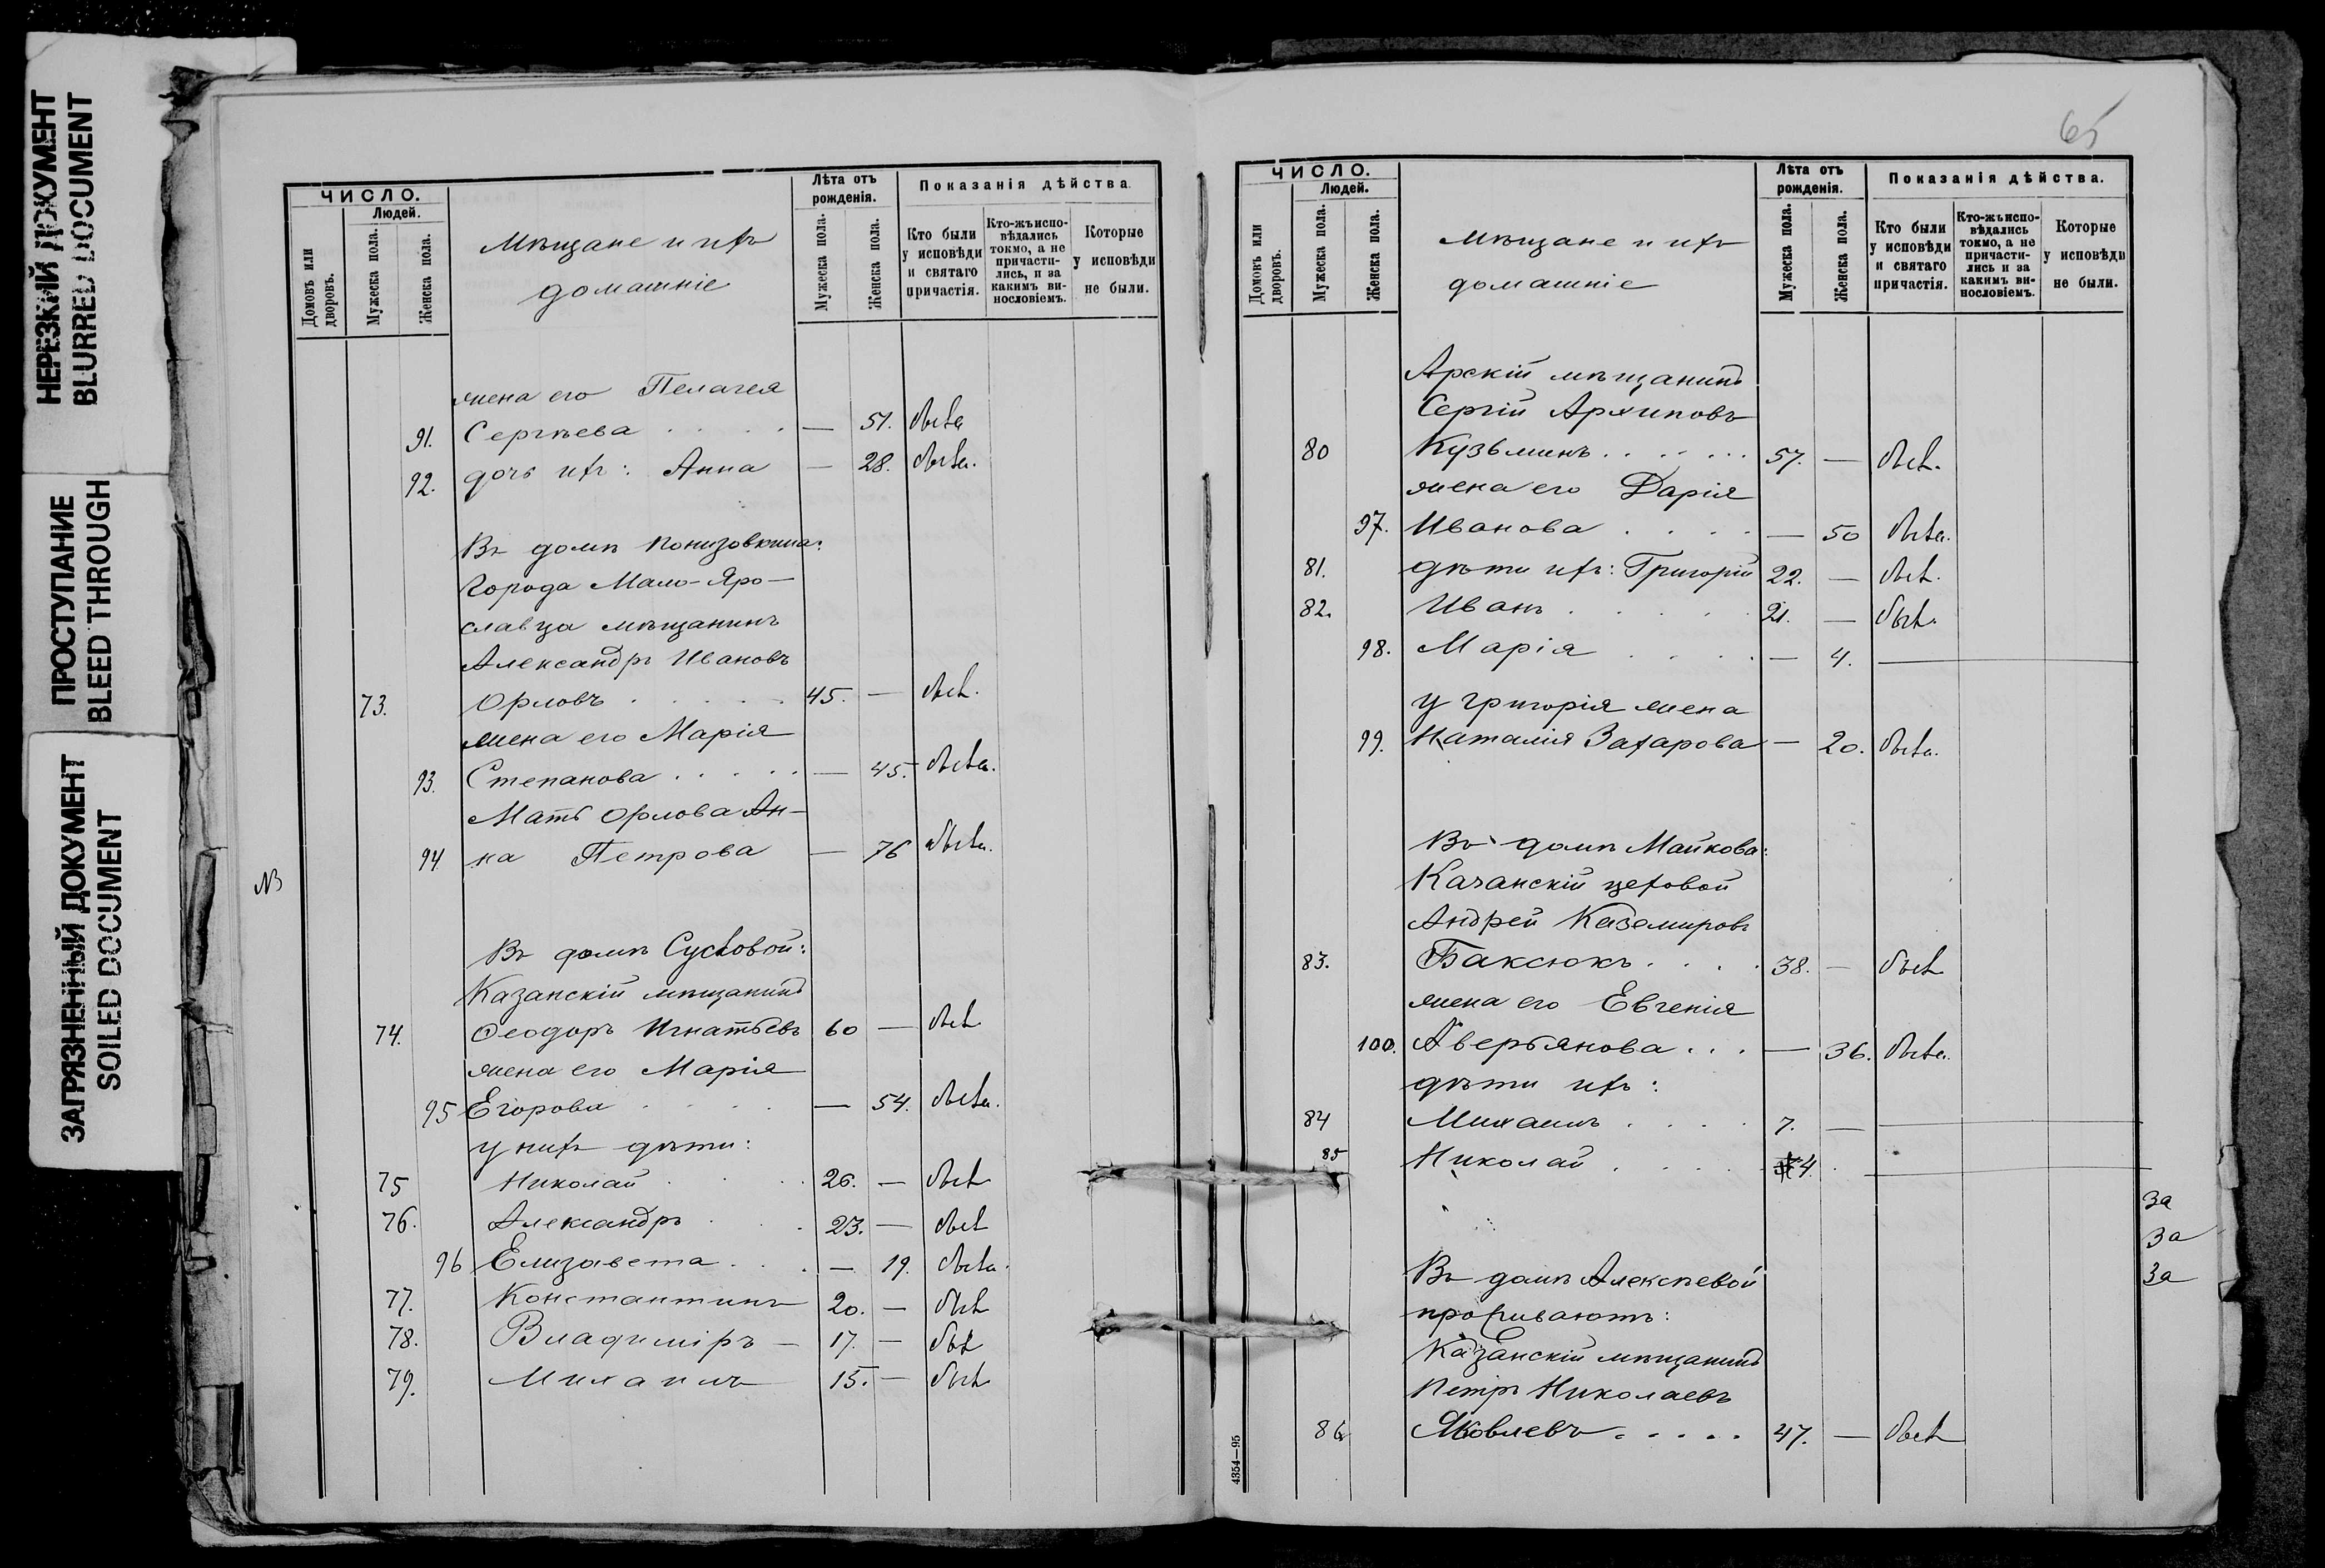 НЕРЕЗКИЙ ДОКУМЕНТ
BLURRED DOCUMENT
ПРОСТУПАНИЕ
BLEED THROUGH
ЗАГРЯЗНЕННЫЙ ДОКУМЕНТ
SOILED DOCUMENT
ЧИСЛО.
Людей.
Домовъ или дворовъ.
Мужеска пола.
Женска пола.
Мѣщане и ихъ
домашніе
Лѣта отъ рожденія.
Мужеска пола.
Женска пола.
Показанія дѣйства.
Кто были у исповѣди и святаго причастія.
Кто-жъ испо-вѣдались токмо, а не причасти-лись, и за какимъ ви-нословіемъ.
Которые у исповѣди не были.
жена его Пелагея
91. Сергѣева . . . . — 51. была
92. дочь ихъ: Анна — 28. была.
Въ домѣ Понизовкина:
Города Мало-Яро-
славца мѣщанинъ
Александръ Ивановъ
73. Орловъ . . . . . 45. — был.
жена его Марія
93. Степанова . . . . . — 45. была.
Мать Орлова Ан-
94 на Петрова — 76 была.
№
Въ домѣ Сусловой:
Казанскій мѣщанинъ
74. Ѳеодоръ Игнатьевъ 60 — был
жена его Марія
95 Егорова . . . . — 54. была.
у нихъ дѣти:
75 Николай . . . 26. — был
76. Александръ . . . 23. — был
96 Елизавета . . . — 19. была.
77. Константинъ 20. — был
78. Владиміръ — 17. — был
79. Михаилъ 15. — был
65
ЧИСЛО.
Людей.
Домовъ или дворовъ.
Мужеска пола.
Женска пола.
Мѣщане и ихъ
домашніе
Лѣта отъ рожденія.
Мужеска пола.
Женска пола.
Показанія дѣйства.
Кто были у исповѣди и святаго причастія.
Кто-жъ испо-вѣдались токмо, а не причасти-лись и за какимъ ви-нословіемъ.
Которые у исповѣди не были.
Арскій мѣщанинъ
Сергій Архиповъ
80 Кузьминъ . . . . . . 57. — был.
жена его Дарія
97. Иванова . . . . — 50 была.
81. дѣти ихъ: Григорій 22. — был.
82. Иванъ . . . . . 21. — был.
98. Марія . . . . — 4. —
у Григорія жена
99. Наталія Захарова — 20. была.
Въ домѣ Майкова:
Казанскій цеховой
Андрей Каземировъ
83. Баксюкъ . . . . 38. — был
жена его Евгенія
100. Аверьянова . . . — 36. была.
дѣти ихъ:
84 Михаилъ . . . . 7. —
85 Николай . . . . 4. —
За
За
За
Въ домѣ Алексѣевой
проживаютъ:
Казанскій мѣщанинъ
Петръ Николаевъ
86 Яковлевъ . . . . . 47. — был
4354—95